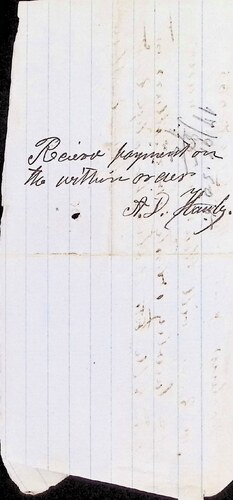 Reievd payment on
the within order
A. D. Handy.